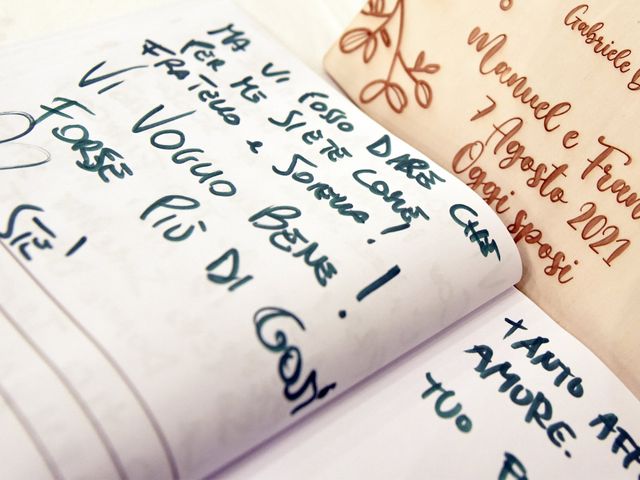 MA VI POSSO DIRE CHE
PER ME SIETE COME
FRATELLO e SORELLA!
VI VOGLIO BENE!
FORSE PIÙ DI COSÌ
SIE!
+ANTO AFF
AMORE.
TUO
Gabriele
Manuel e Fran
7 Agosto 2021
Oggi sposi